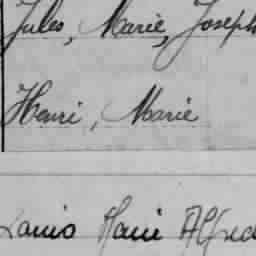 Jules, Marie, Joseph
Henri, Marie
Louis Marie Alfred